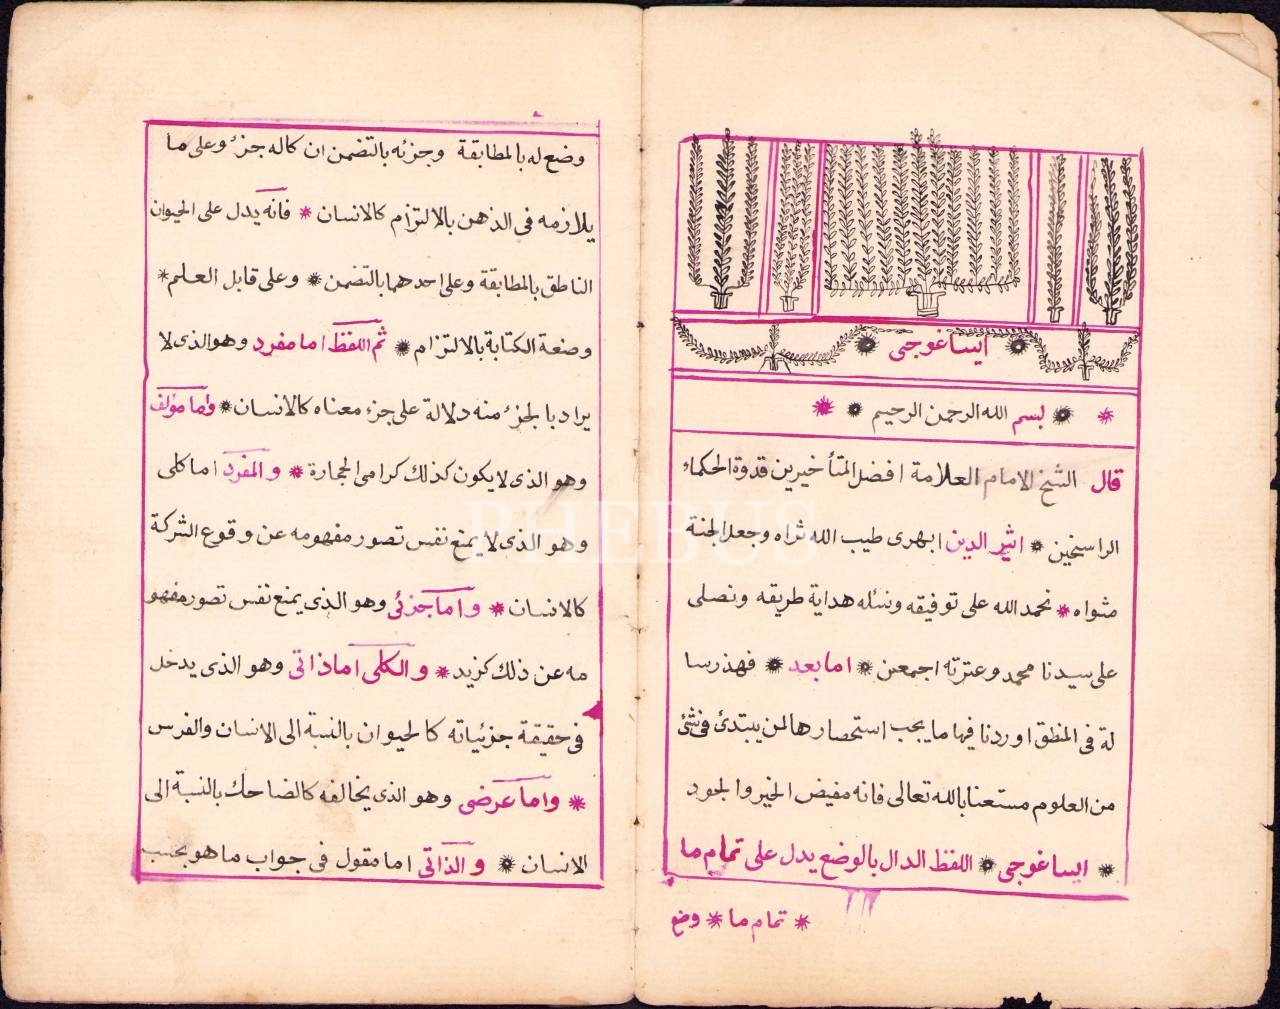 ايساغوجى
بسم الله الرحمن الرحيم
قال الشيخ الامام العلامة افضل المتأخيرين قدوة الحكماء
الراسخين اثير الدين ابهرى طيب الله ثراه وجعل الجنة
مثواه نحمد الله على توفيقه ونسئله هداية طريقه ونصلى
على سيدنا محمد وعترته اجمعين اما بعد فهذ رسا
لة فى المنطق اوردنا فيها ما يجب استحصارها لمن يبتدئ فى شئ
من العلوم مستعنا بالله تعالى فانه مفيض الخير والجود
ايساغوجى اللفظ الدال بالوضع يدل على تمام ما
تمام ما وضع
وضع له بالمطابقة وجزئه بالتضمن ان كاله جزء وعلى ما
يلازمه فى الذهن بالالتزام كالانسان فانه يدل على الحيوان
الناطق بالمطابقة وعلى احدهما بالتضمن وعلى قابل العلم
وضعة الكتابة بالالتزام ثم اللفظ اما مفرد وهو الذى لا
يراد بالجزء منه دلالة على جزء معناه كالانسان واما مؤلف
وهو الذى لا يكون كذلك كرامى الحجارة والمفرد اما كلى
وهو الذى لا يمنع نفس تصور مفهومه عن وقوع الشركة
كالانسان واما جزئى وهو الذى يمنع نفس تصور مفهو
مه عن ذلك كزيد والكلى اما ذاتى وهو الذى يدخل
فى حقيقة جزئياته كالحيوان بالنسبة الى الانسان والفرس
واما عرضى وهو الذى يخالفه كالضاحك بالنسبة الى
الانسان والذاتى اما مقول فى جواب ما هو بحسب
PHEBUS